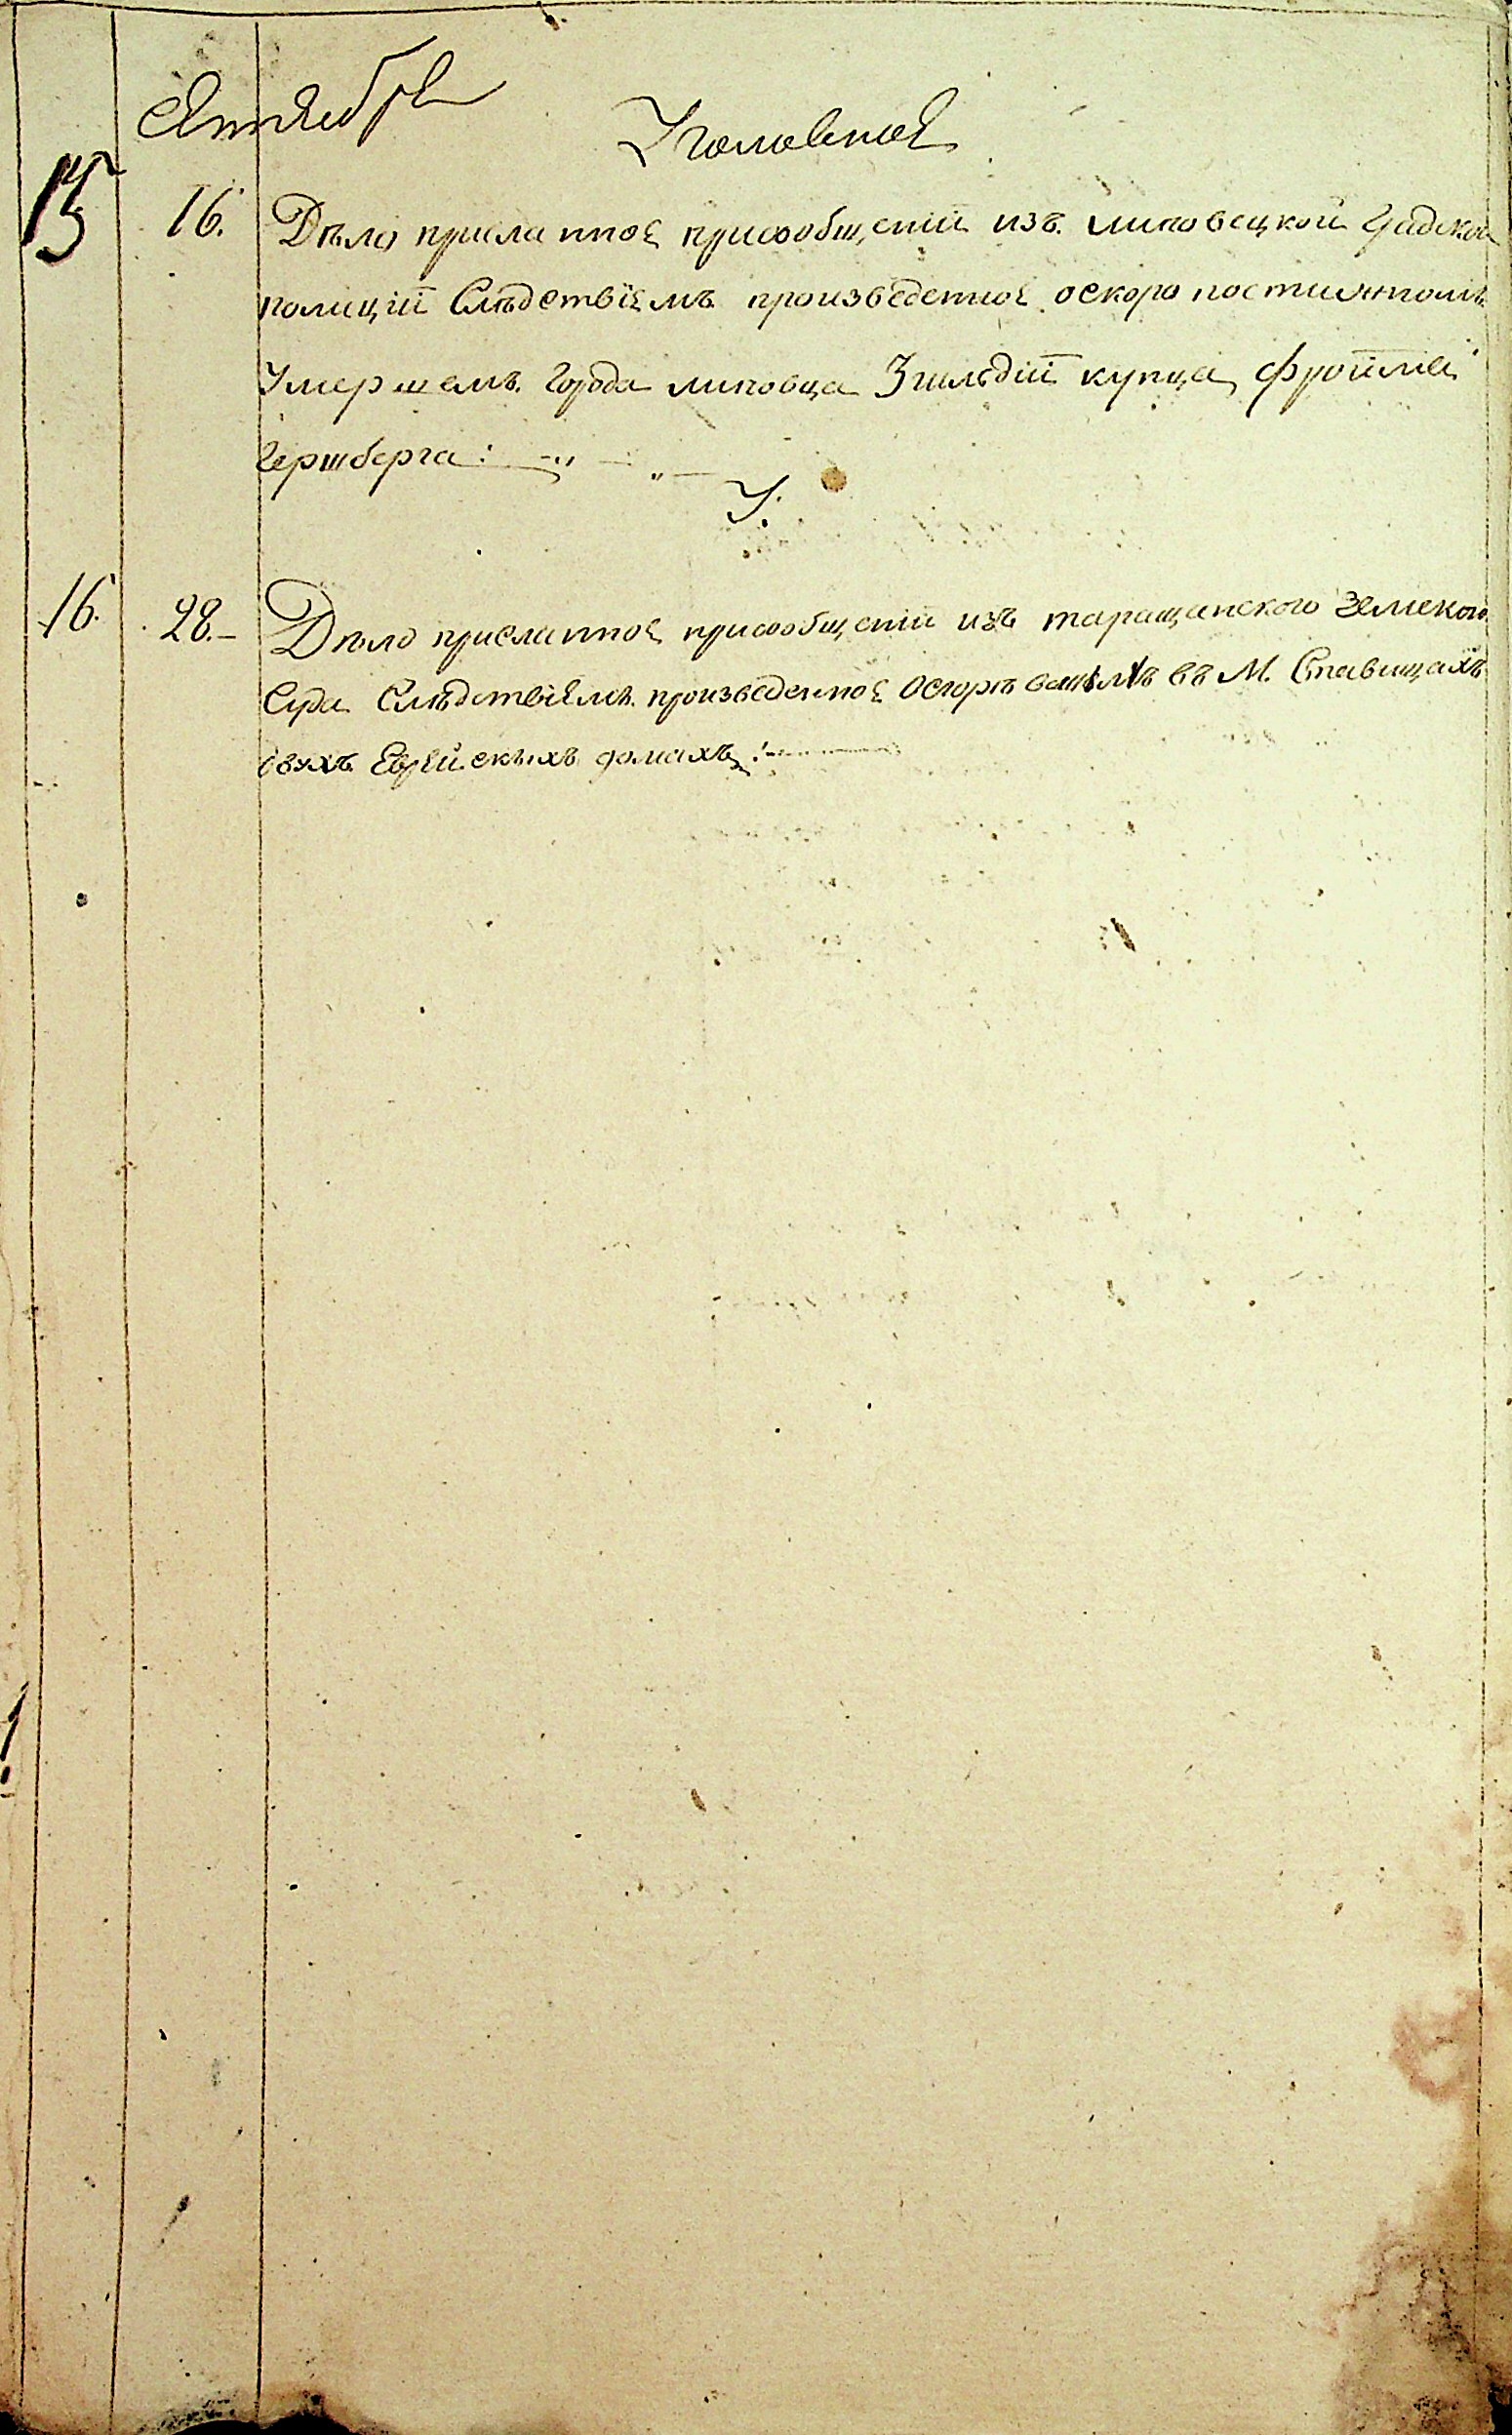 Сентября
Уголовное
15 16. Дело присланное присообщении изъ липовецкой Градской
полиции Следствиемъ произведенное оскоро постижном
Умершемъ города липовца 3 гильдии купца Фроима
Гершберга:
У.
16. 28. Дело присланное присообщении изъ таращанского Земского
Суда Следствиемъ произведенное Осгоревшимъ въ М. Ставищахъ
двухъ Еврейскихъ домахъ: